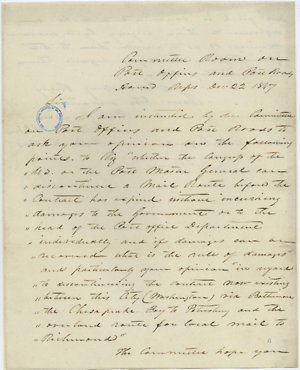 Committee Room on
Post Offices and Post Roads
House Reps Dec 22 1857
Sir
I am instructed by the Committee
on Post Offices and Post Roads to
ask your opinion on the following
points, to wig "whether the Congress of the
"U.S. or the Post Master General can
"discontinue a Mail Route before the
"Contract has expired without incurring
"damages to the Government or to the
"head of the Post Office Department
"individually and if damages can be
"recovered what is the rule of damages"
"and particularly your opinion" in regard
"to discontinuing the contract now existing
"between this City (Washington) via Baltimore
"the Chesapeake Bay to Petersburg and the
"overland route for local mail to
"Richmond"
The Committee hope you